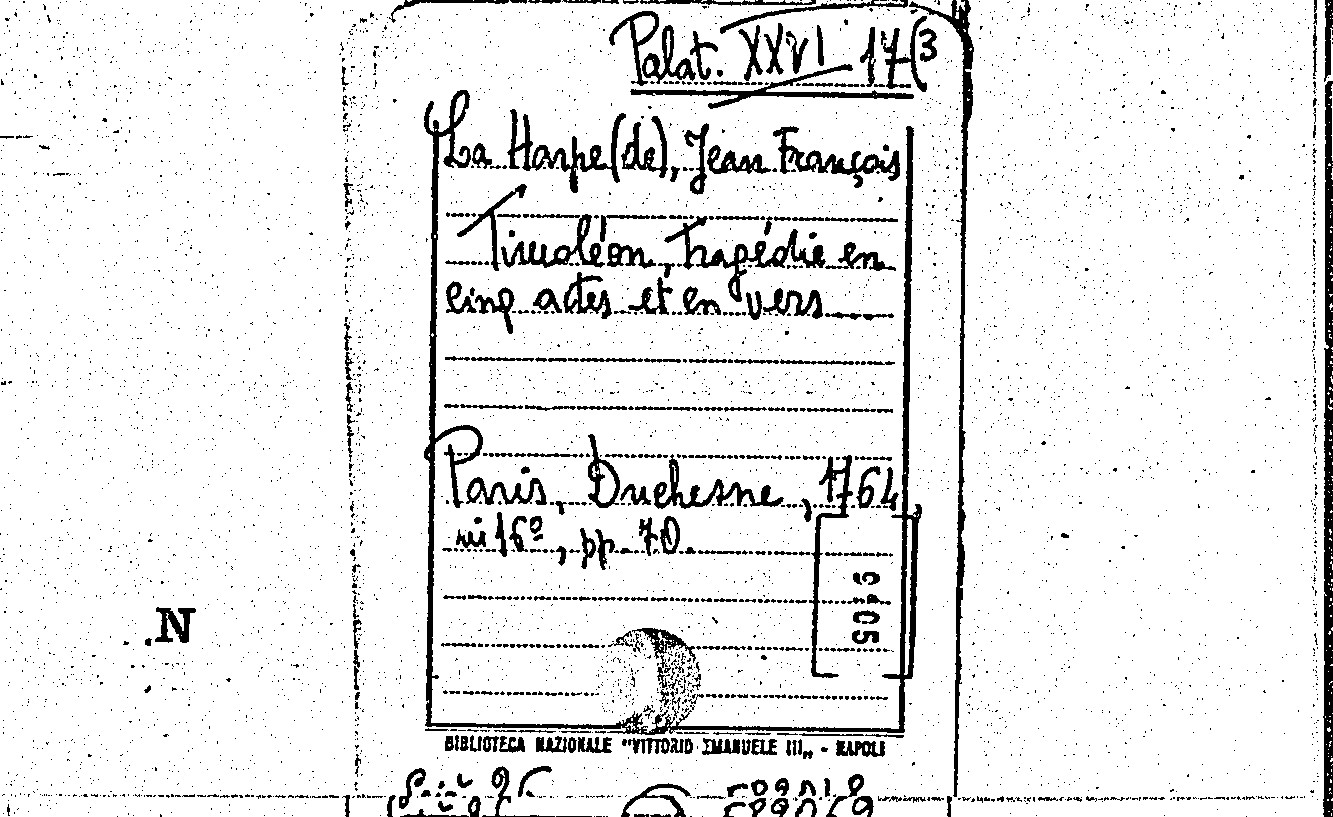 Palat. XXVI 17(3
La Harpe (de), Jean François
Timoléon, Tragédie en
cinq actes et en vers....
Paris, Duchesne, 1764,
in 16º, pp. 70.
N
BIBLIOTECA NAZIONALE "VITTORIO EMANUELE III„ - NAPOLI